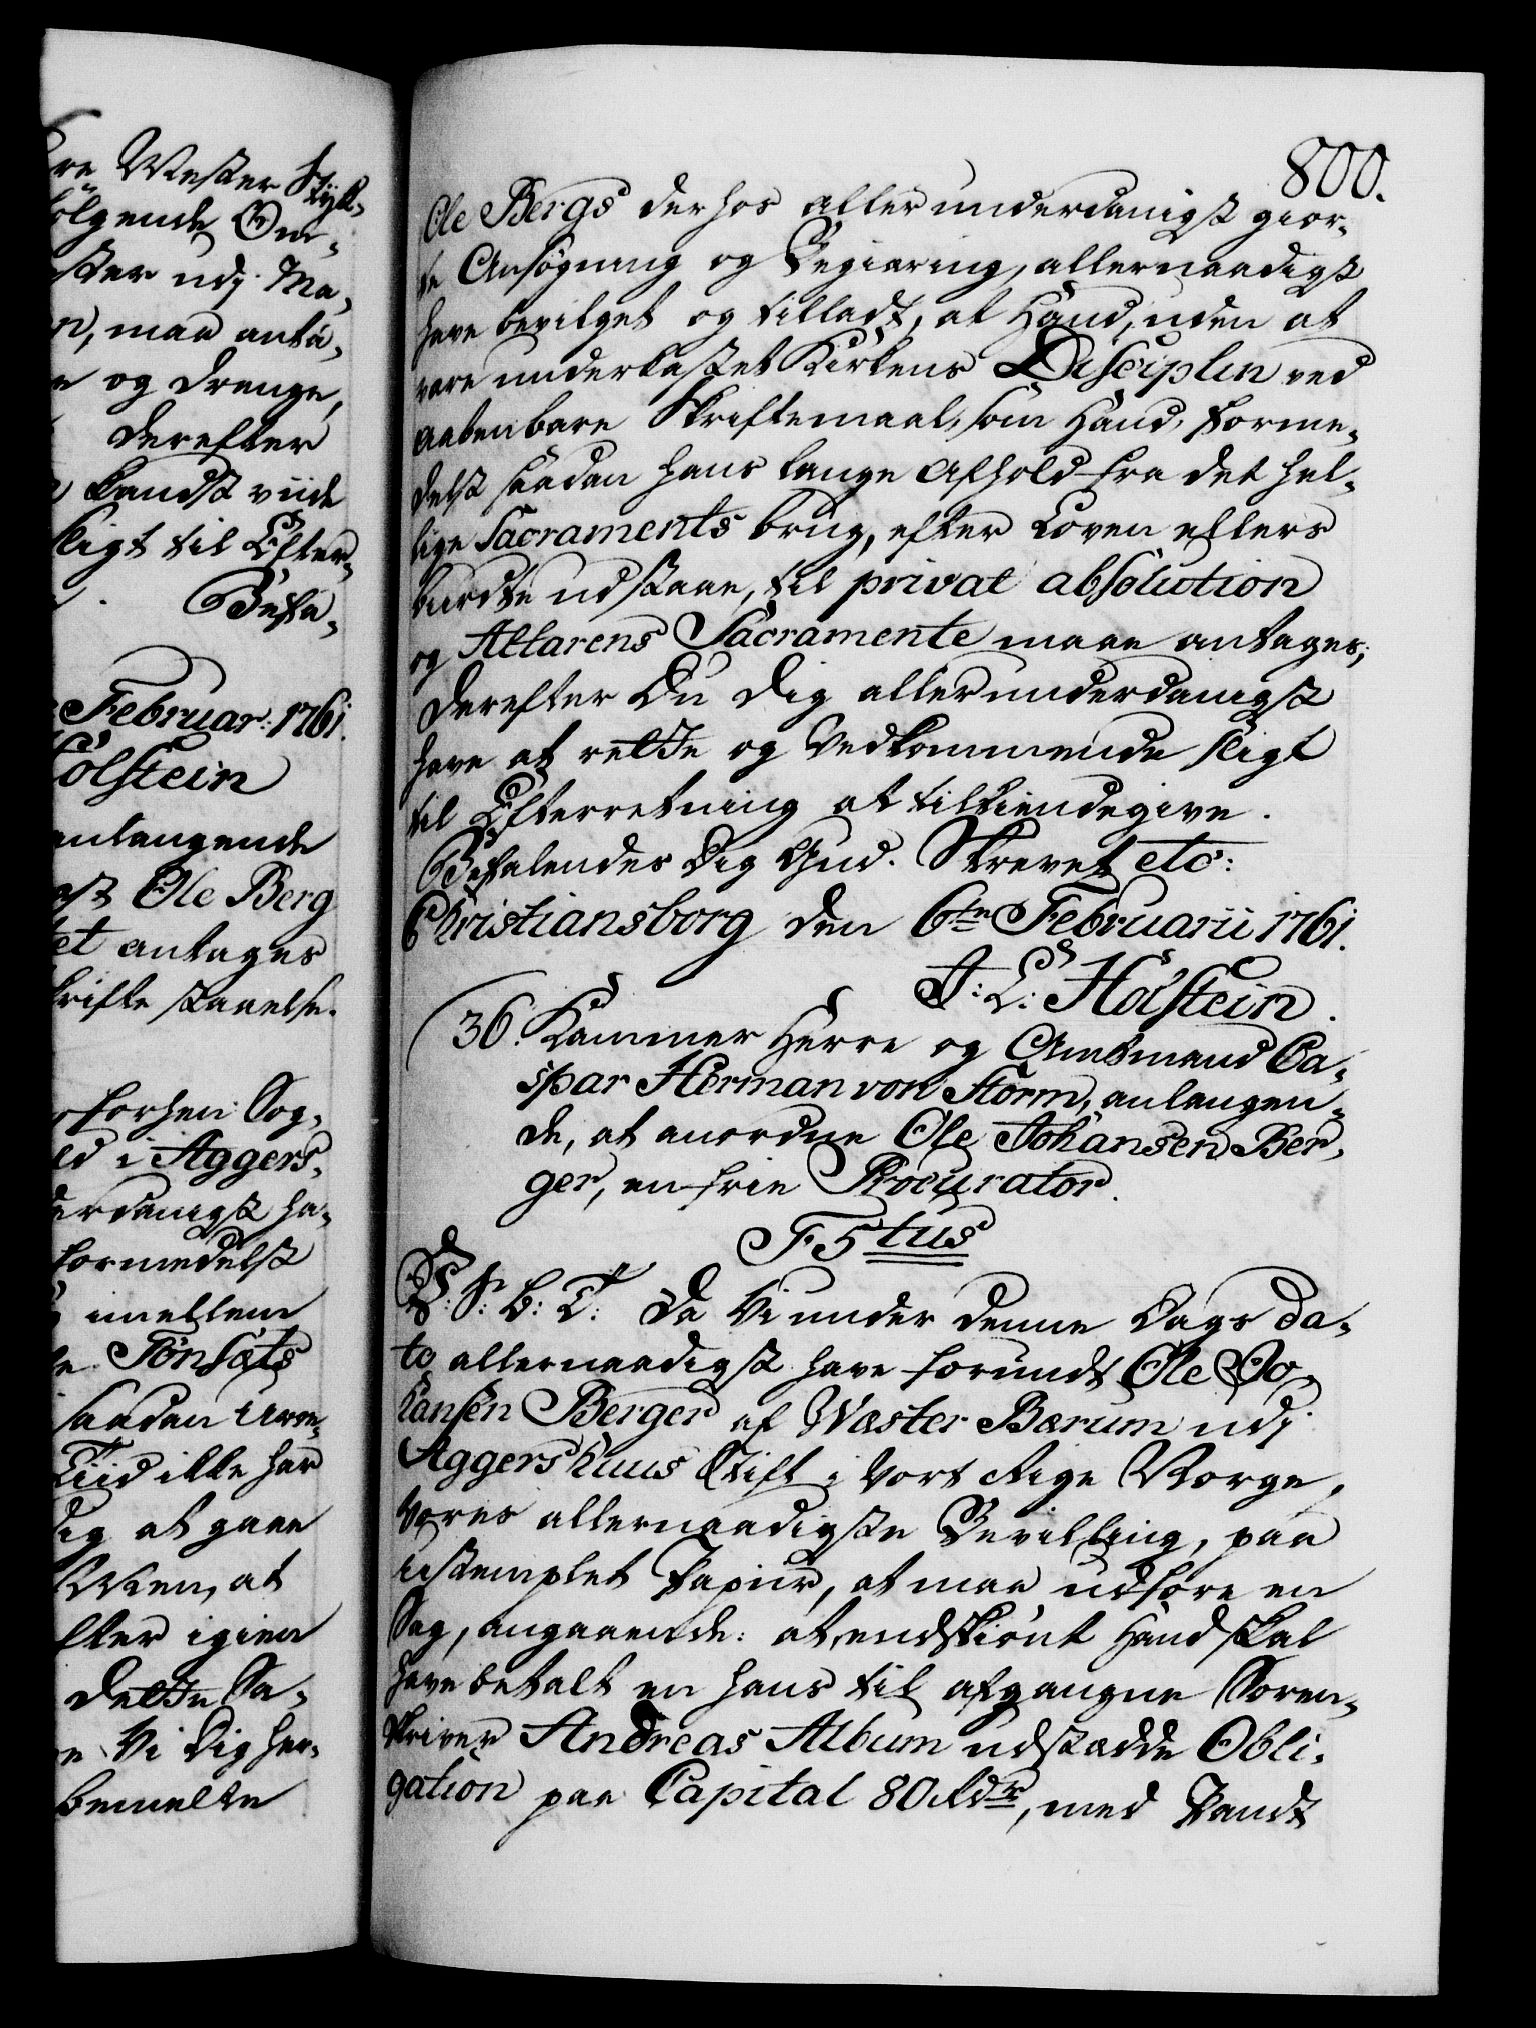 ere Wester Styk-
følgende Om-
efter udj Ma-
n, maa anta-
e og drenge,
derefter
Landst viide
sligt til Efter-
Befa-
Februar: 1761.
Holstein
anlangende
ast Ole Berg
et antages
skrifte staaelse.
forhen: Sog-
ed i Aggers-
derdanigst ha-
formedelst
imellem
Tønsæts
saadan Uvee-
Tiid ikke har
dig at gaae
Viisen, at
efter igien
dette Sa-
Vi Dig her-
bemelte
800.
Ole Bergs derhos allerunderdanigst gior-
te Ansøgning og Begiæring, allernaadigst
have bevilget og tilladt, at Hand, uden at
være underkastet Kirkens Disciplin ved
aabenbare Skriftemaal, som Hand, forme-
delst saadan hans lange Afhold fra det hel-
lige Sacraments brug, efter Loven ellers
burdte udstaae, til privat absolution
og Altarens Sacramente maae antages;
Derefter Du dig allerunderdanigst
have at rette og Vedkommende sligt
til Efterretning at tilkiendegive.
Befalendes Dig Gud. Skrevet etc:
Christiansborg den 6te Februarii 1761.
J: L: Holstein.
36. Kammer Herre og Amtmand Ca-
spar Herman von Storm, anlangen-
de, at anordne Ole Johansen Ber-
ger, en frie Procurator.
F 5tus
F: S: B: T: Da Vi under denne Dags Da-
to allernaadigst have forundt Ole Jo-
hansen Berger af Wæster Bærum udj
Aggershuus Stift i Vort Rige Norge,
Vores allernaadigste Bevilling, paa
ustemplet Papiir, at maa udføre en
Sag, angaaende: at, endskiønt Hand skal
have betalt en hans til afgangne Soren-
skriver Andreas Album udstædde Obli-
gation paa Capital 80 Rdr, med Pandt